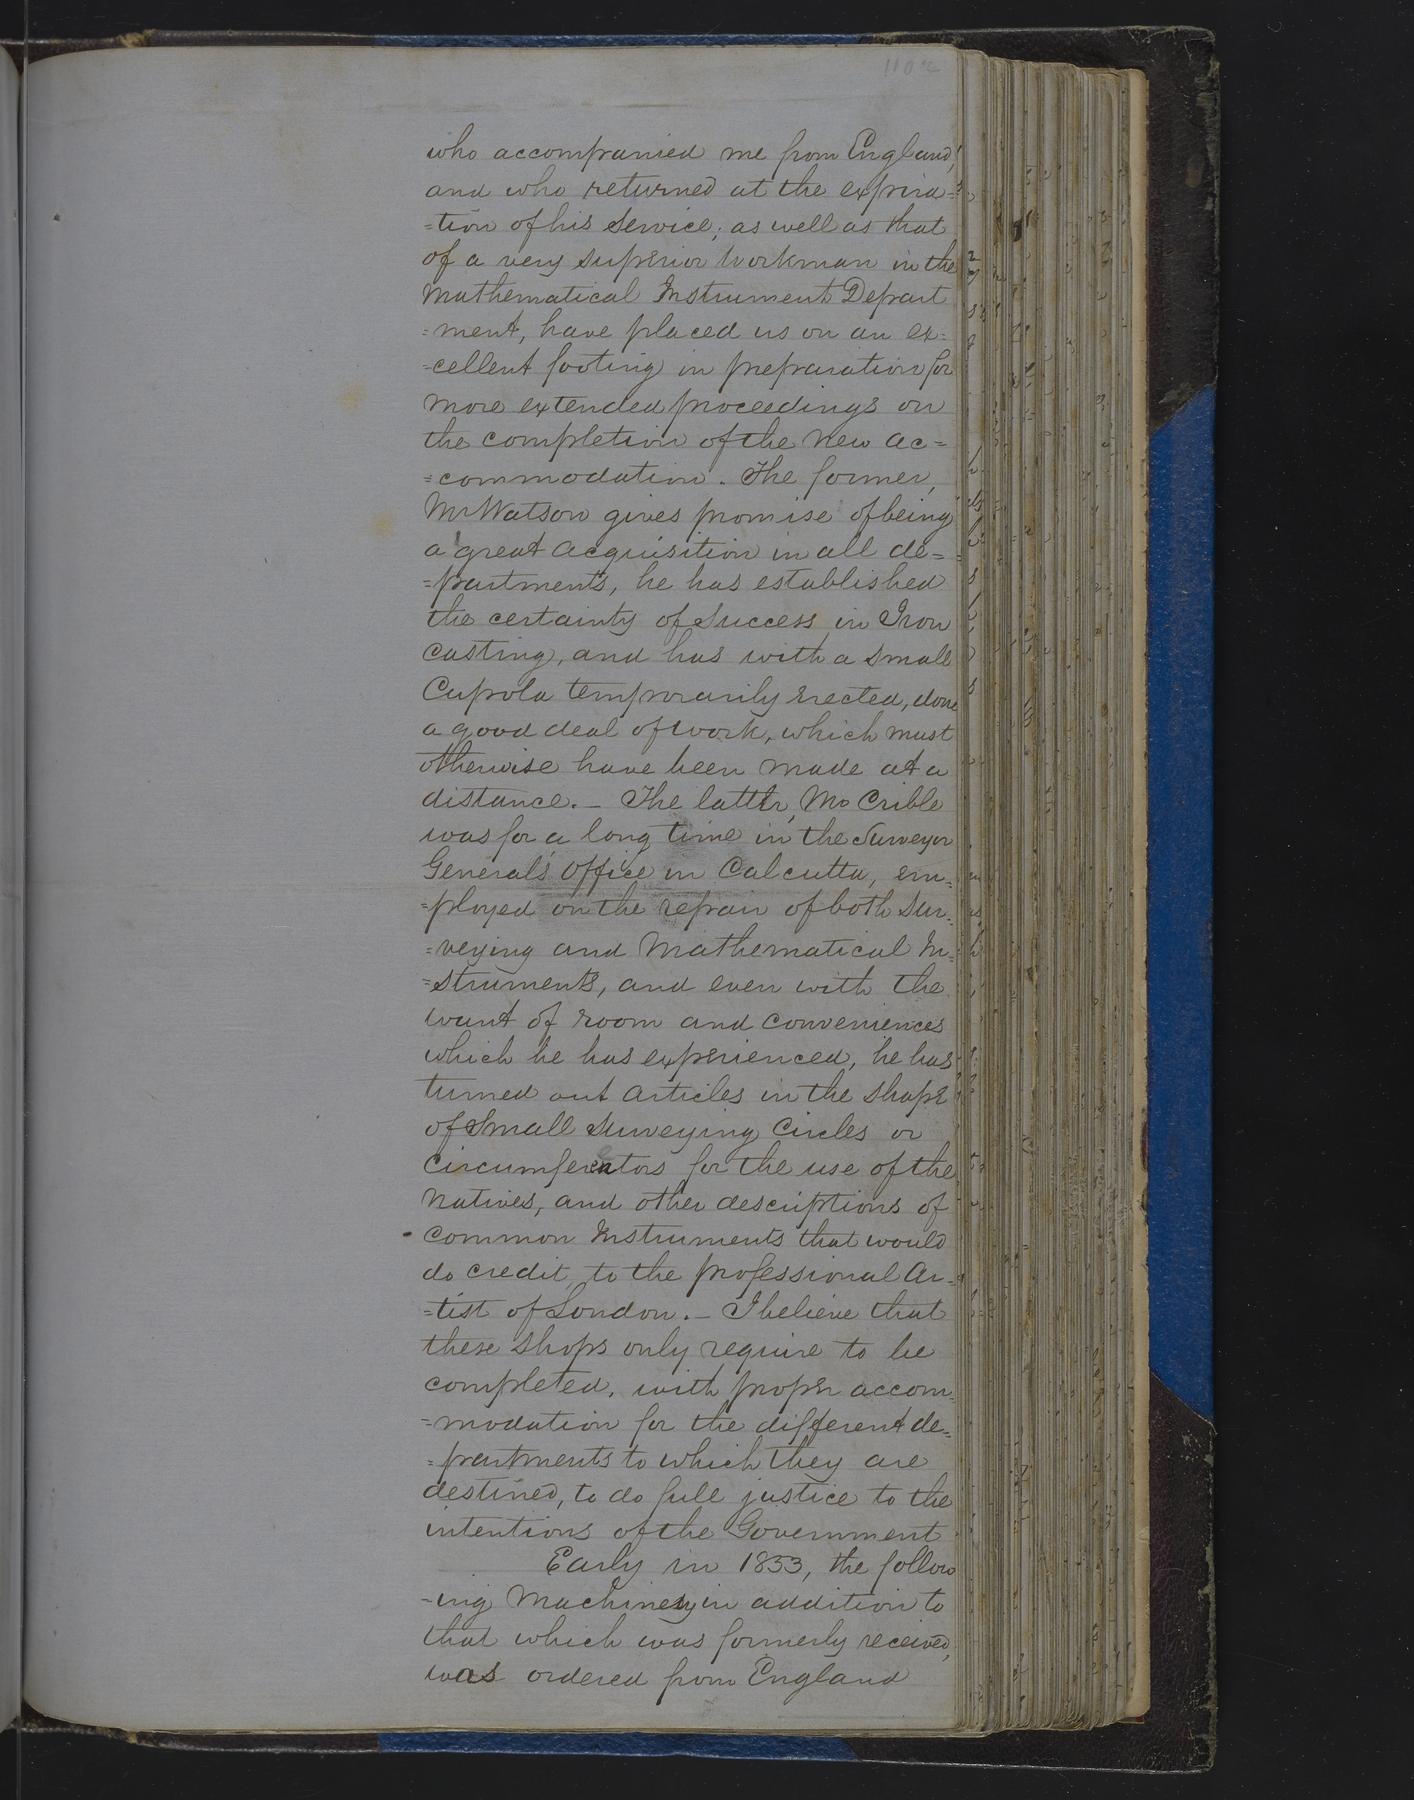 1102
who accompanied me from England,
and who returned at the expira=
=tion of his service; as well as that
of a very superior Workman in the
Mathematical Instrument Depart
=ment, have placed us on an ex=
=cellent footing in preparation for
more extended proceedings on
the completion of the new ac=
=commodation. The former,
Mr Watson gives promise of being
a great acquisition in all de=
=partments, he has established
the certainty of Success in Iron
Casting, and has with a small
Cupola temporarily erected, done
a good deal of work, which must
otherwise have been made at a
distance. _ The latter, Mr Crible
was for a long time in the Surveyor
General's Office in Calcutta, em=
=ployed on the repair of both Sur=
=veying and Mathematical In=
=struments, and even with the
want of room and conveniences
which he has experienced, he has
turned out articles in the shape
of Small Surveying Circles or
circumferentors for the use of the
Natives, and other descriptions of
common Instruments that would
do credit, to the professional Ar=
=tist of London. _ I believe that
these shops only require to be
completed, with proper accom=
=modation for the different de=
=partments to which they are
destined, to do full justice to the
intentions of the Government
Early in 1853, the follow
-ing Machinery in addition to
that which was formerly received,
was ordered from England